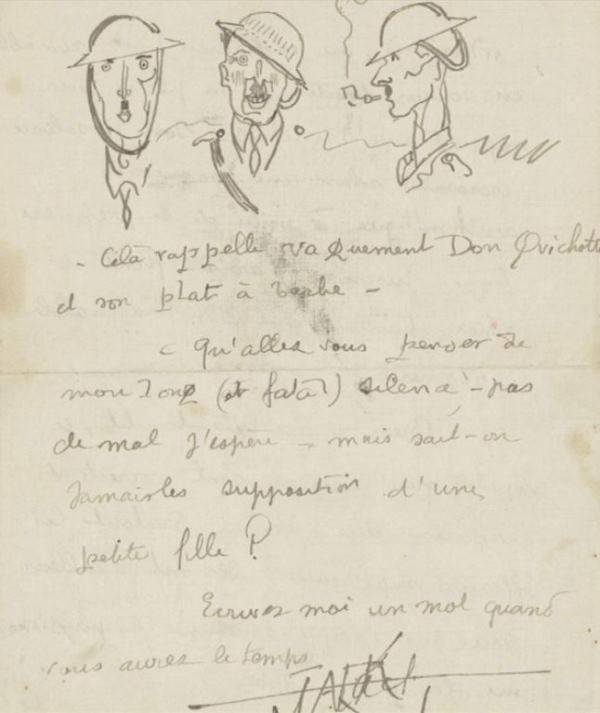 - Celà rappelle vaguement Don Quichotte
et son plat à barbe -
- Qu'allez vous penser de
mon long (et fatal) silence - pas
de mal j'espère - mais sait-on
Jamais les supposition d'une
petite fille ?
Ecrivez moi un mot quand
vous aurez le temps